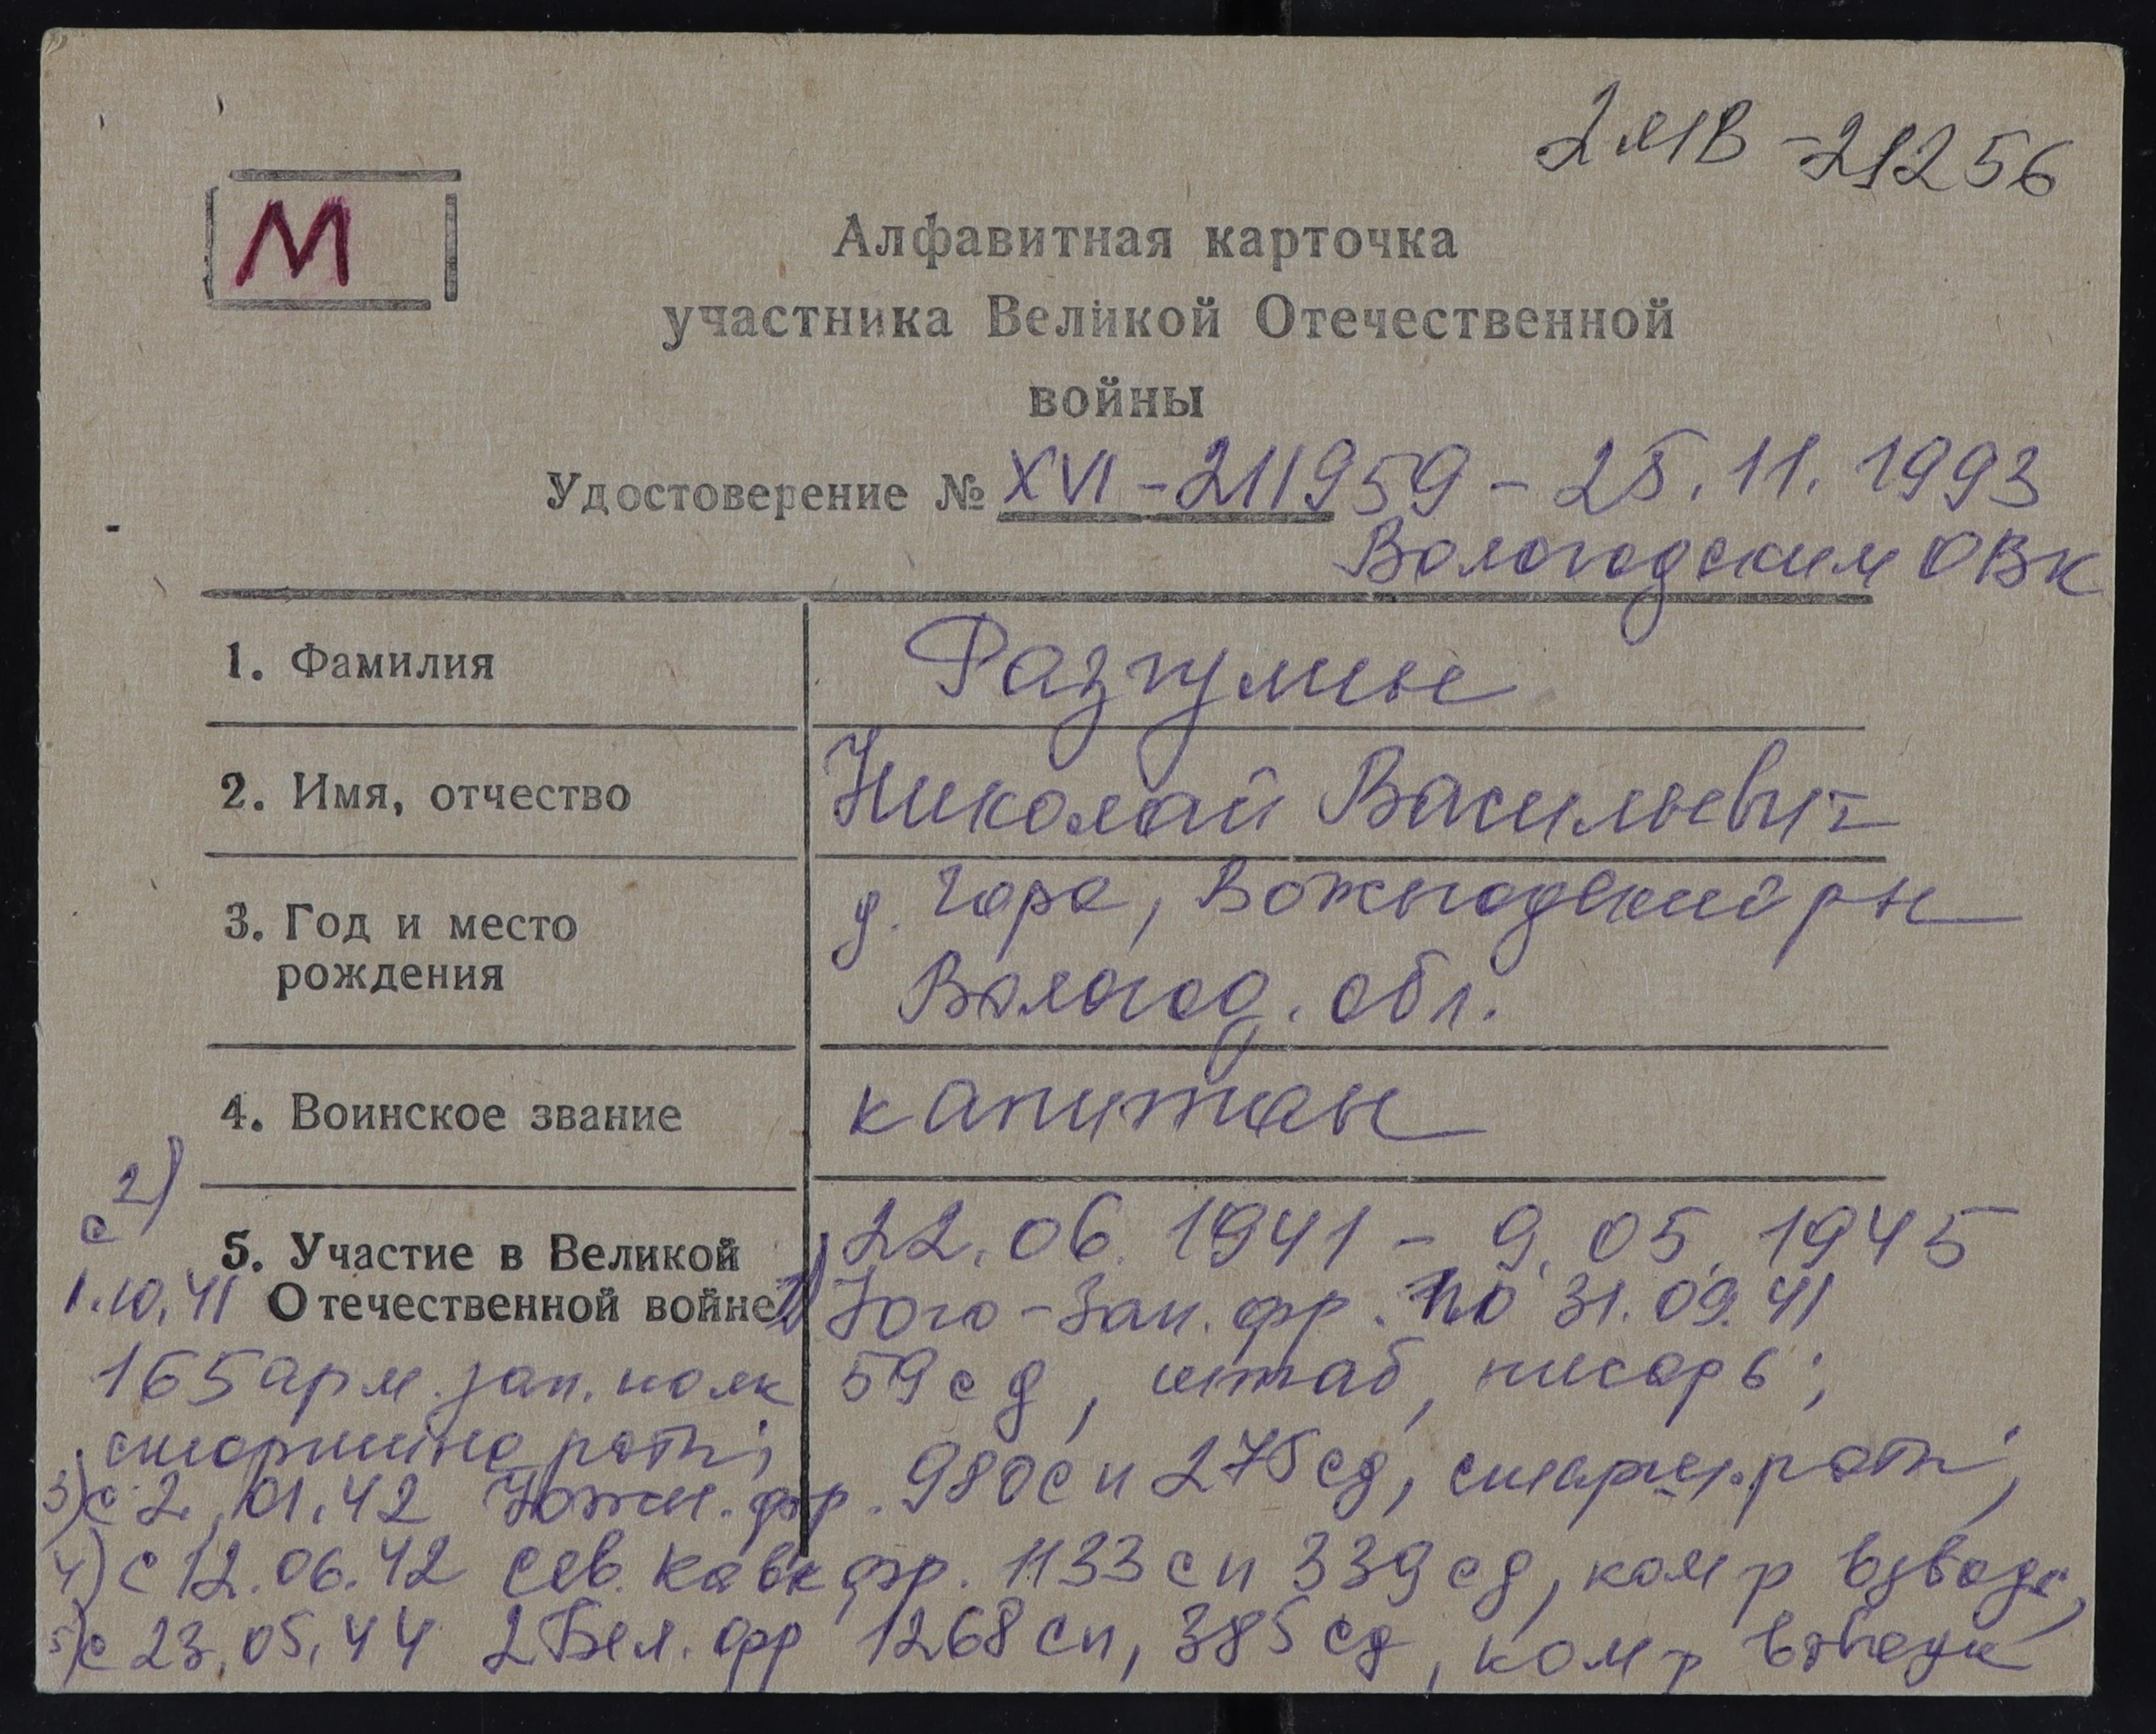 2МВ-21256
М
Алфавитная карточка
участника Великой Отечественной
войны
Удостоверение № XVI-211959 - 25.11.1993
Вологодским ОВК
1. Фамилия
2. Имя, отчество Николай Васильевич
3. Год и место д. Гора, Вожегодский рн
рождения Вологод. обл.
4. Воинское звание капитан
5. Участие в Великой 22.06.1941 - 9.05.1945
Отечественной войне 1) Юго-Зап. фр. по 31.09.41
59 сд, штаб, писарь;
2) с
1.10.41
165 арм. зап. полк
старшина роты;
3) с 2.01.42 Южн. фр. 980 сп 275 сд, старш. роты;
4) с 12.06.42 Сев. Кавк фр. 1133 сп 339 сд, ком-р взвода,
5) с 23.05.44 2 Бел. фр 1268 сп, 385 сд, ком-р взвода